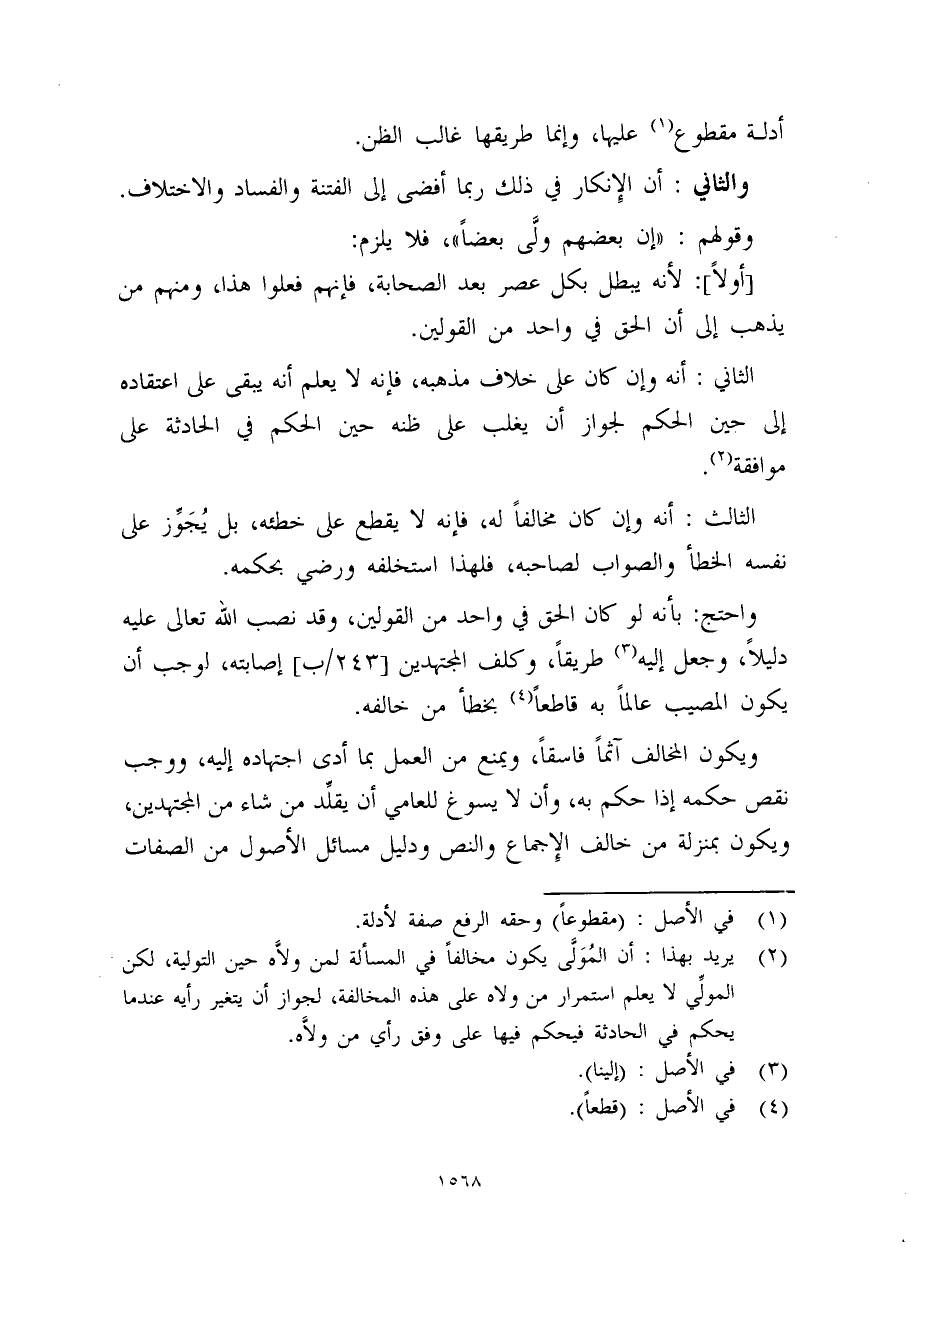 أدلة مقطوع(١) عليها، وإنما طريقها غالب الظن.
والثاني : أن الإنكار في ذلك ربما أفضى إلى الفتنة والفساد والاختلاف.
وقولهم : «إن بعضهم ولَّى بعضاً»، فلا يلزم:
[أولاً]: لأنه يبطل بكل عصر بعد الصحابة، فإنهم فعلوا هذا، ومنهم من
يذهب إلى أن الحق في واحد من القولين.
الثاني : أنه وإن كان على خلاف مذهبه، فإنه لا يعلم أنه يبقى على اعتقاده
إلى حين الحكم لجواز أن يغلب على ظنه حين الحكم في الحادثة على
موافقة(٢).
الثالث : أنه وإن كان مخالفاً له، فإنه لا يقطع على خطئه، بل يُجَوِّز على
نفسه الخطأ والصواب لصاحبه، فلهذا استخلفه ورضي بحكمه.
واحتج: بأنه لو كان الحق في واحد من القولين، وقد نصب الله تعالى عليه
دليلاً، وجعل إليه(٣) طريقاً، وكلف المجتهدين [٢٤٣/ب] إصابته، لوجب أن
يكون المصيب عالماً به قاطعاً(٤) بخطأ من خالفه.
ويكون المخالف آثماً فاسقاً، ويمنع من العمل بما أدى اجتهاده إليه، ووجب
نقص حكمه إذا حكم به، وأن لا يسوغ للعامي أن يقلِّد من شاء من المجتهدين،
ويكون بمنزلة من خالف الإجماع والنص ودليل مسائل الأصول من الصفات
(١) في الأصل : (مقطوعاً) وحقه الرفع صفة لأدلة.
(٢) يريد بهذا : أن المُوَلَّى يكون مخالفاً في المسألة لمن ولاَّه حين التولية، لكن
المولِّي لا يعلم استمرار من ولاه على هذه المخالفة، لجواز أن يتغير رأيه عندما
يحكم في الحادثة فيحكم فيها على وفق رأي من ولاَّه.
(٣) في الأصل : (إلينا).
(٤) في الأصل : (قطعاً).
١٥٦٨